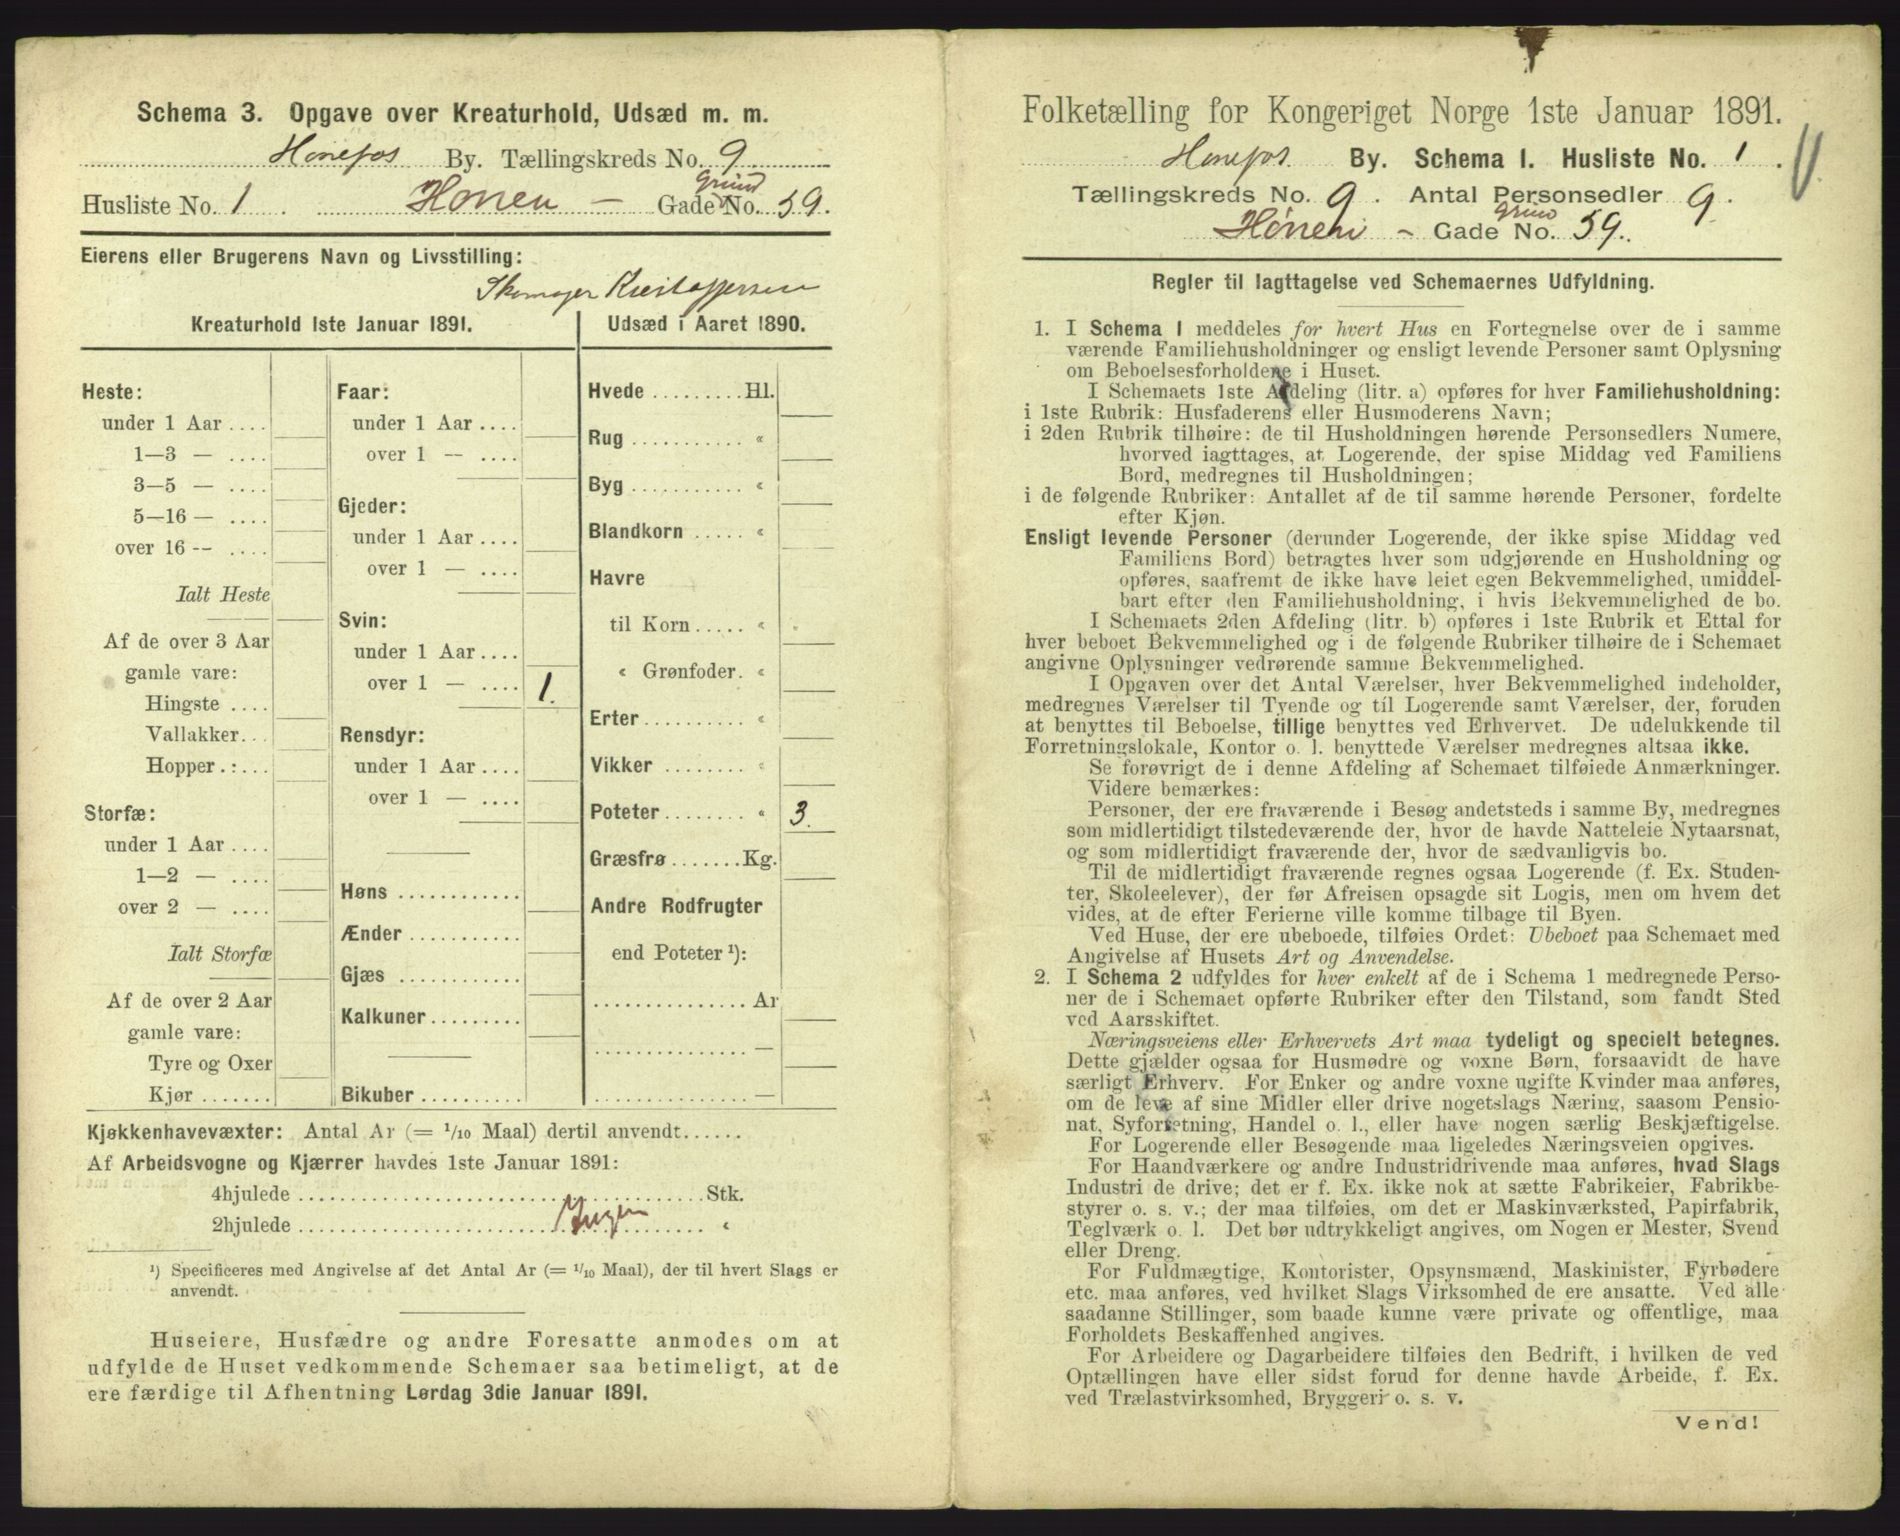 Schema 3. Opgave over Kreaturhold, Udsæd m. m.
Hønefos By. Tællingskreds No. 9
Husliste No. 1 Hønen – Gade No. 59.
Grund
Eierens eller Brugerens Navn og Livsstilling:
Skomager Kristoffersen
Kreaturhold 1ste Januar 1891.
Heste:
under 1 Aar ....
1—3 — ....
3—5 — ....
5—16 — ....
over 16 -- ....
Ialt Heste
Af de over 3 Aar
gamle vare:
Hingste ....
Vallakker...
Hopper .:...
Storfæ:
under 1 Aar ....
1—2 — ....
over 2 — ....
Ialt Storfæ
Af de over 2 Aar
gamle vare:
Tyre og Oxer
Kjør .......
Faar:
under 1 Aar ....
over 1 — ....
Gjeder:
under 1 Aar ....
over 1 — ....
Svin:
under 1 Aar ....
over 1 — .... 1.
Rensdyr:
under 1 Aar ....
over 1 — ....
Høns ............
Ænder ...........
Gjæs ............
Kalkuner.........
Bikuber ..........
Udsæd i Aaret 1890.
Hvede .........Hl.
Rug ........... «
Byg ........... «
Blandkorn ..... «
Havre
til Korn ..... «
« Grønfoder. «
Erter .......... «
Vikker ........ «
Poteter ........ « 3.
Græsfrø .......Kg.
Andre Rodfrugter
end Poteter ¹):
................ Ar
................ —
................ —
Kjøkkenhavevæxter: Antal Ar (= 1/10 Maal) dertil anvendt......
Af Arbeidsvogne og Kjærrer havdes 1ste Januar 1891:
4hjulede ........................................ Stk.
2hjulede ........................ Ingen ........ «
¹) Specificeres med Angivelse af det Antal Ar (= 1/10 Maal), der til hvert Slags er
anvendt.
Huseiere, Husfædre og andre Foresatte anmodes om at
udfylde de Huset vedkommende Schemaer saa betimeligt, at de
ere færdige til Afhentning Lørdag 3die Januar 1891.
Folketælling for Kongeriget Norge 1ste Januar 1891.
Hønefos. By. Schema I. Husliste No. 1.
Tællingskreds No. 9. Antal Personsedler 9.
Grund
Hønen – Gade No. 59.
Regler til Iagttagelse ved Schemaernes Udfyldning.
1. I Schema I meddeles for hvert Hus en Fortegnelse over de i samme
værende Familiehusholdninger og ensligt levende Personer samt Oplysning
om Beboelsesforholdene i Huset.
I Schemaets 1ste Afdeling (litr. a) opføres for hver Familiehusholdning:
i 1ste Rubrik: Husfaderens eller Husmoderens Navn;
i 2den Rubrik tilhøire: de til Husholdningen hørende Personsedlers Numere,
hvorved iagttages, at Logerende, der spise Middag ved Familiens
Bord, medregnes til Husholdningen;
i de følgende Rubriker: Antallet af de til samme hørende Personer, fordelte
efter Kjøn.
Ensligt levende Personer (derunder Logerende, der ikke spise Middag ved
Familiens Bord) betragtes hver som udgjørende en Husholdning og
opføres, saafremt de ikke have leiet egen Bekvemmelighed, umiddel-
bart efter den Familiehusholdning, i hvis Bekvemmelighed de bo.
I Schemaets 2den Afdeling (litr. b) opføres i 1ste Rubrik et Ettal for
hver beboet Bekvemmelighed og i de følgende Rubriker tilhøire de i Schemaet
angivne Oplysninger vedrørende samme Bekvemmelighed.
I Opgaven over det Antal Værelser, hver Bekvemmelighed indeholder,
medregnes Værelser til Tyende og til Logerende samt Værelser, der, foruden
at benyttes til Beboelse, tillige benyttes ved Erhvervet. De udelukkende til
Forretningslokale, Kontor o. l. benyttede Værelser medregnes altsaa ikke.
Se forøvrigt de i denne Afdeling af Schemaet tilføiede Anmærkninger.
Videre bemærkes:
Personer, der ere fraværende i Besøg andetsteds i samme By, medregnes
som midlertidigt tilstedeværende der, hvor de havde Natteleie Nytaarsnat,
og som midlertidigt fraværende der, hvor de sædvanligvis bo.
Til de midlertidigt fraværende regnes ogsaa Logerende (f. Ex. Studen-
ter, Skoleelever), der før Afreisen opsagde sit Logis, men om hvem det
vides, at de efter Ferierne ville komme tilbage til Byen.
Ved Huse, der ere ubeboede, tilføies Ordet: Ubeboet paa Schemaet med
Angivelse af Husets Art og Anvendelse.
2. I Schema 2 udfyldes for hver enkelt af de i Schema 1 medregnede Perso-
ner de i Schemaet opførte Rubriker efter den Tilstand, som fandt Sted
ved Aarsskiftet.
Næringsveiens eller Erhvervets Art maa tydeligt og specielt betegnes.
Dette gjælder ogsaa for Husmødre og voxne Børn, forsaavidt de have
særligt Erhverv. For Enker og andre voxne ugifte Kvinder maa anføres,
om de leve af sine Midler eller drive nogetslags Næring, saasom Pensio-
nat, Syforretning, Handel o. l., eller have nogen særlig Beskjæftigelse.
For Logerende eller Besøgende maa ligeledes Næringsveien opgives.
For Haandværkere og andre Industridrivende maa anføres, hvad Slags
Industri de drive; det er f. Ex. ikke nok at sætte Fabrikeier, Fabrikbe-
styrer o. s. v.; der maa tilføies, om det er Maskinværksted, Papirfabrik,
Teglværk o. l. Det bør udtrykkeligt angives, om Nogen er Mester, Svend
eller Dreng.
For Fuldmægtige, Kontorister, Opsynsmænd, Maskinister, Fyrbødere
etc. maa anføres, ved hvilket Slags Virksomhed de ere ansatte. Ved alle
saadanne Stillinger, som baade kunne være private og offentlige, maa
Forholdets Beskaffenhed angives.
For Arbeidere og Dagarbeidere tilføies den Bedrift, i hvilken de ved
Optællingen have eller sidst forud for denne havde Arbeide, f. Ex.
ved Trælastvirksomhed, Bryggeri o. s. v.
Vend!